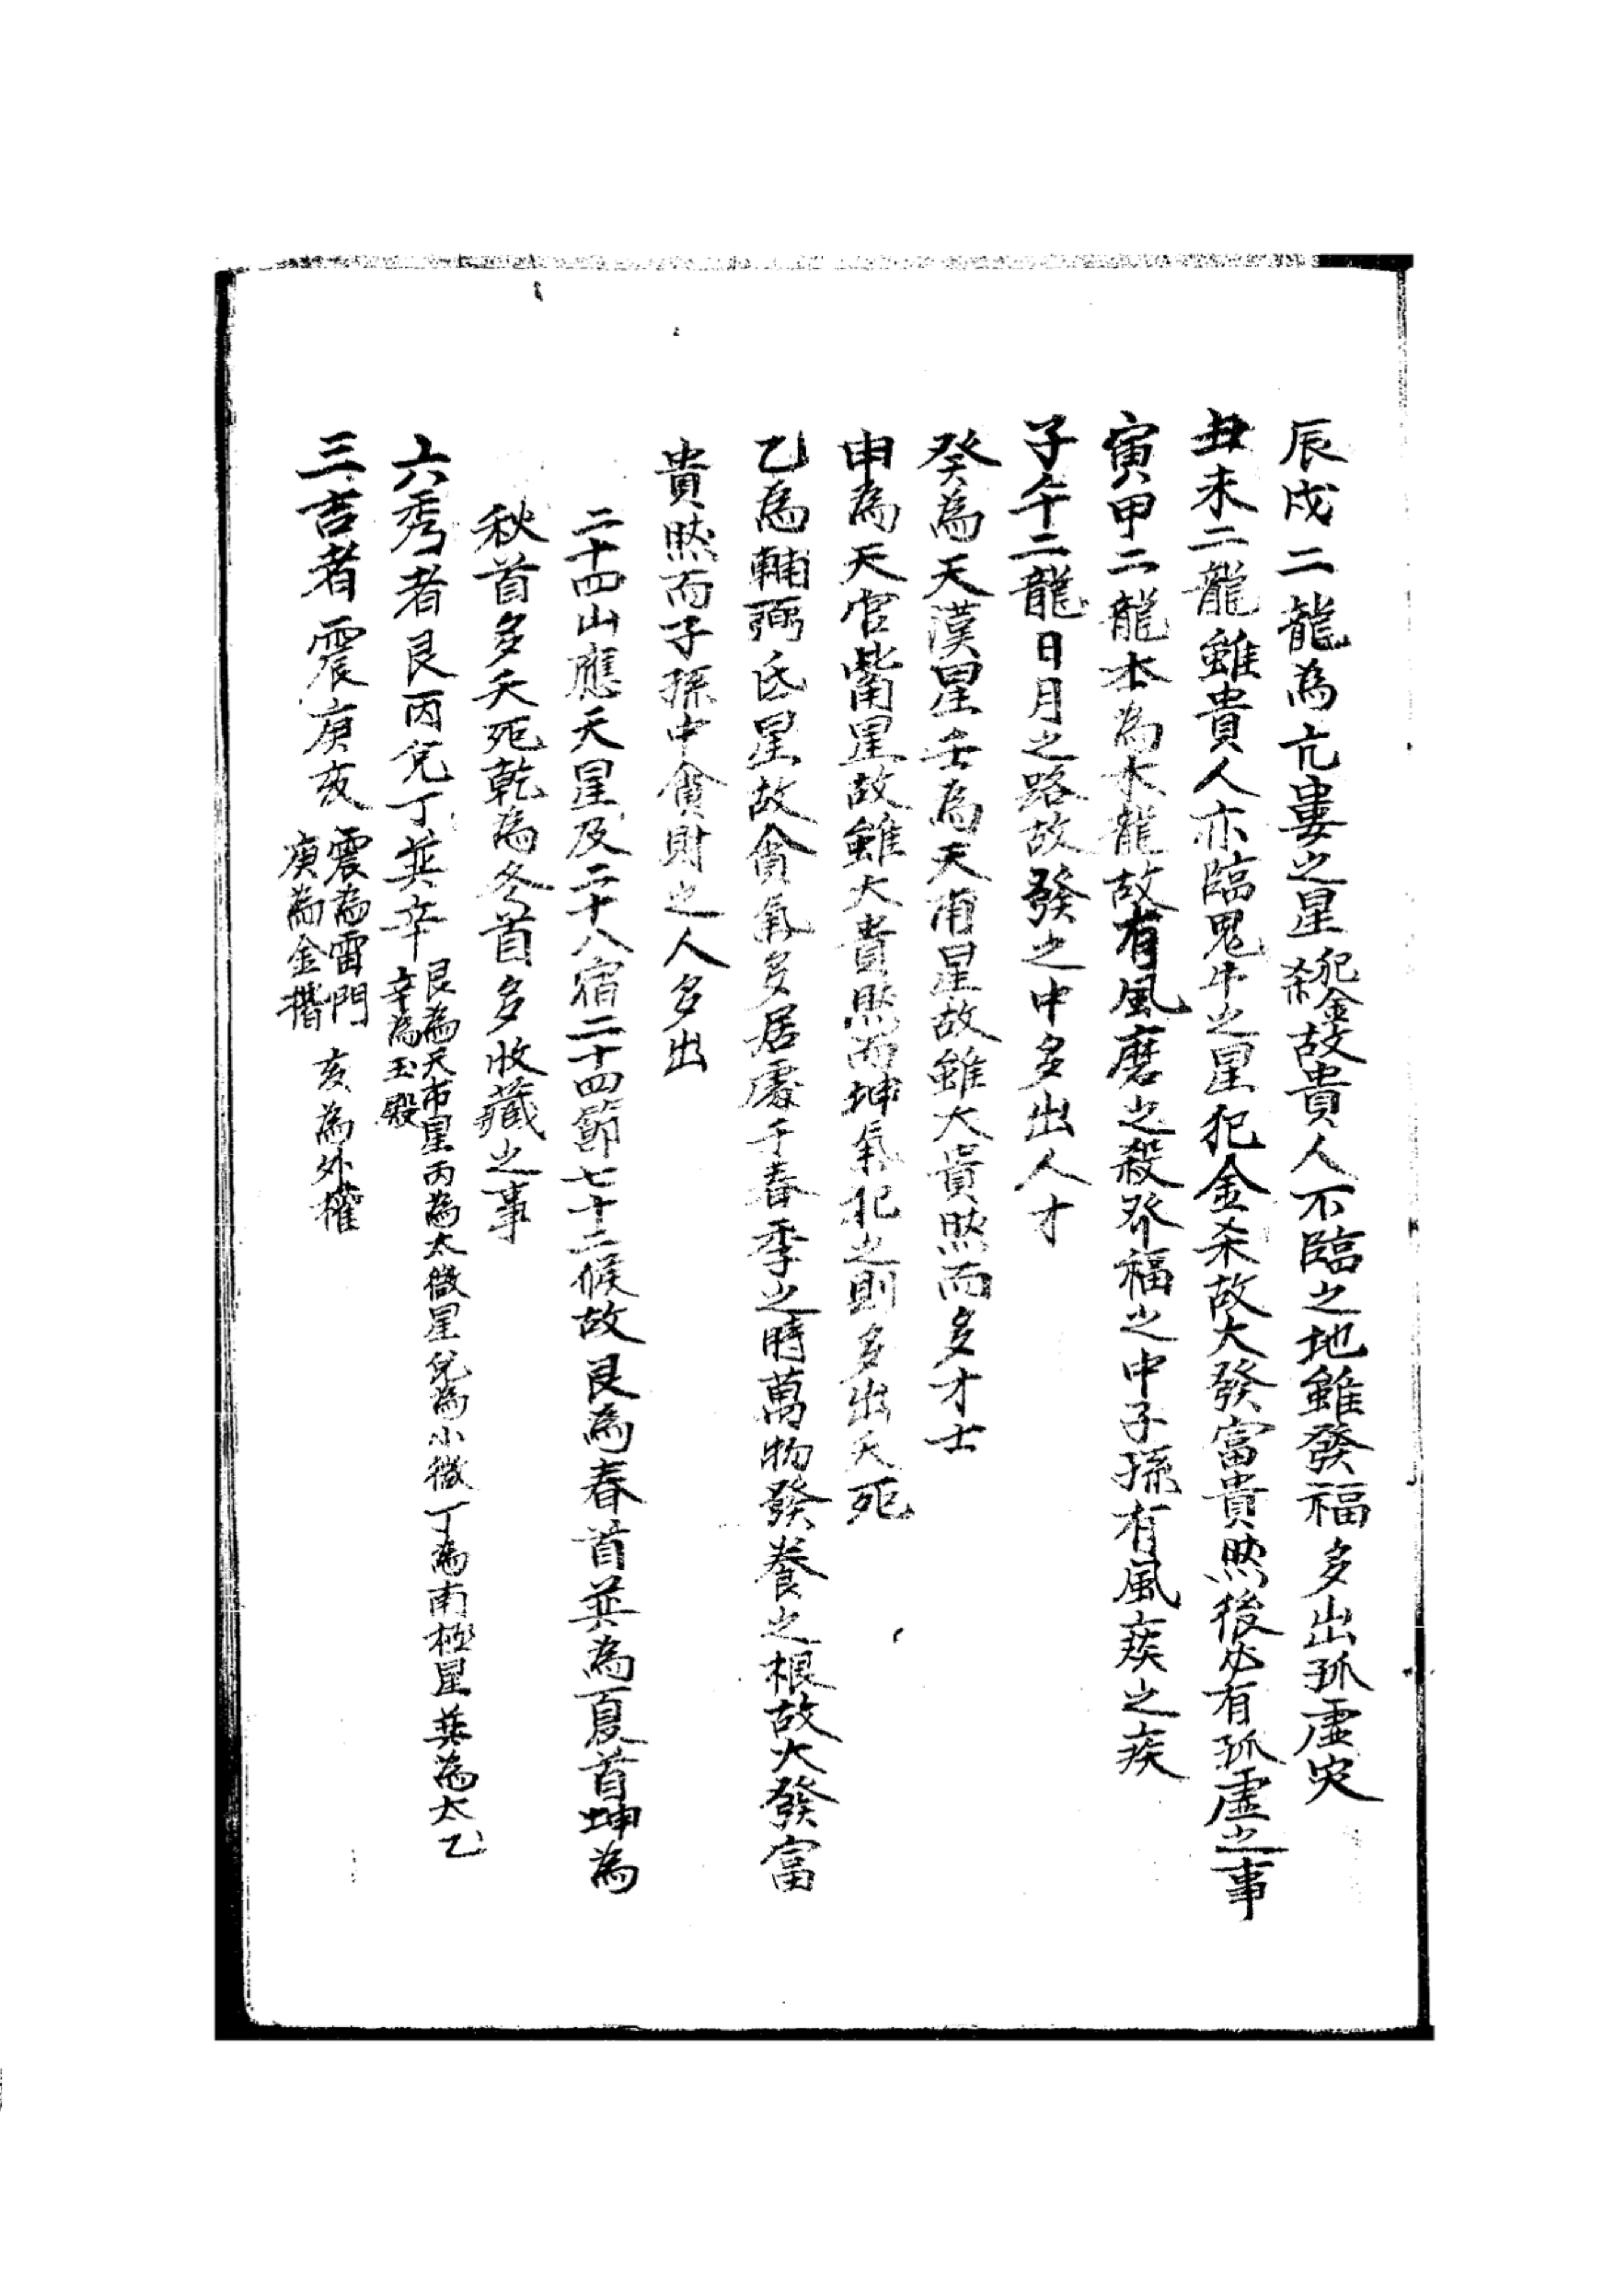 辰戌二龍為亢婁之星犯金殺故貴人不臨之地雖發福多出孤虛灾
丑未二龍雖貴人亦臨鬼牛之星犯金杀故大發富貴然後必有孤虛之事
寅甲二龍本為木龍故有風磨之殺發福之中子孫有風疾之疾
子午二龍日月之路故發之中多出人才
癸為天漢星壬為天甫星故雖大貴然而多才士
申為天官觜星故雖大貴然而坤氣犯之則多出夭死
乙為輔弼氐星故貪氣多居處于春季之時萬物發養之根故大發富
貴然而子孫中貪財之人多出
二十四山應天星及二十八宿二十四節七十二候故艮為春首巽為夏首坤為
秋首多夭死乾為冬首多收藏之事
六秀者艮丙兌丁巽辛艮為天市星丙為太微星兌為小微丁為南極星巽為太乙
辛為玉殿
三吉者震庚亥震為雷門
庚為金揩亥為外權